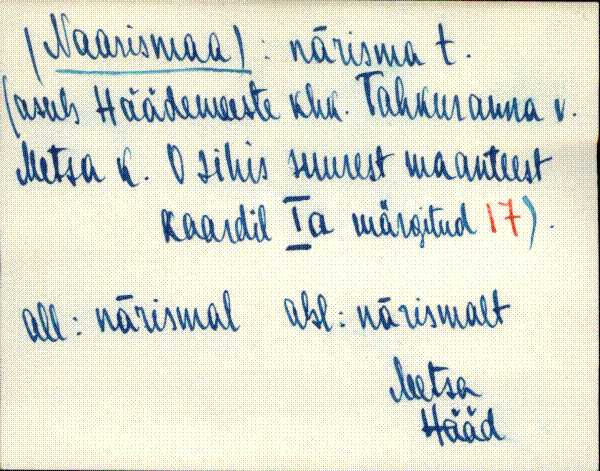 (Naarismaa): närisma t.
(asub Häädemeeste khk. Tahkuranna v.
Metsa k. O sihis suurest maanteest
kaardil Ia märgitud 17).
all: närismal abl: närismalt
Metsa
Hääd